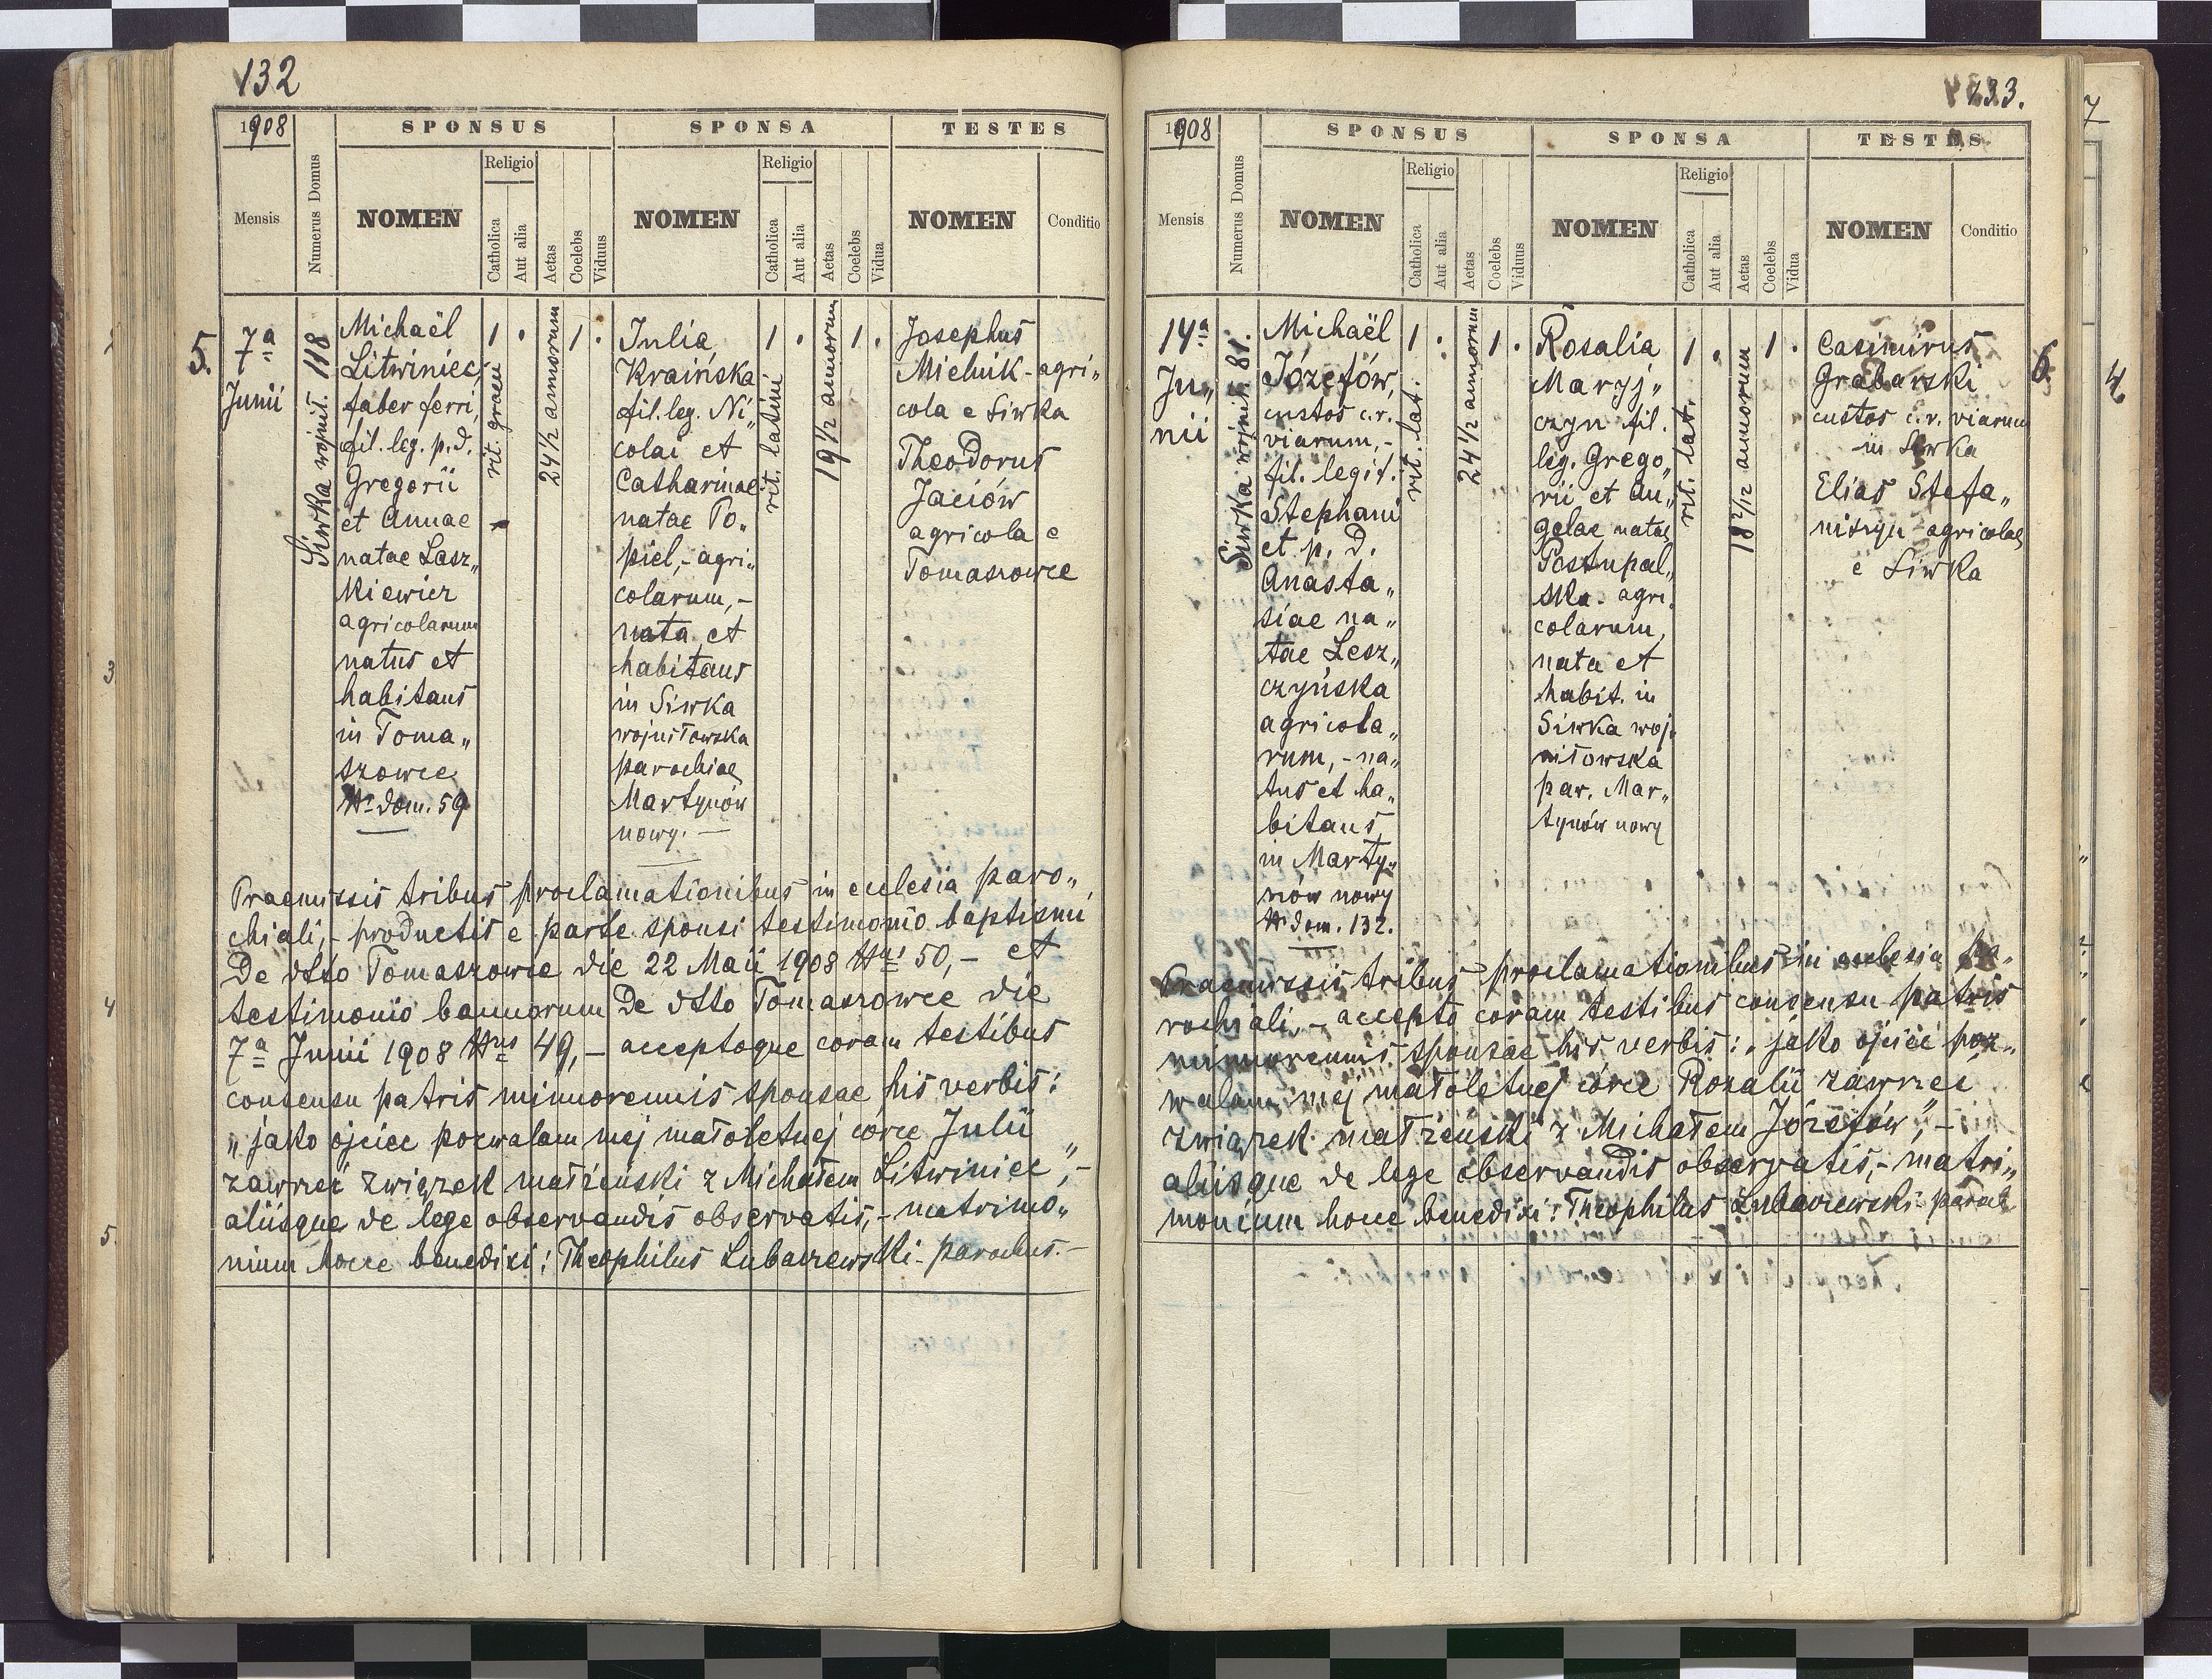 132
1908
SPONSUS
SPONSA
TESTES
Mensis
Numerus Domus
NOMEN
Religio
Catholica
Aut alia
Aetas
Coelebs
Viduus
NOMEN
Religio
Catholica
Aut alia
Aetas
Coelebs
Vidua
NOMEN
Conditio
5.
7a
Junii
Siwka wojnił. 118
Michaël
Litwiniec,
faber ferri,
fil. leg. p. d.
Gregorii
et Annae
natae Lasz„
kiewicz
agricolarum
natus et
habitans
in Toma„
szowce
Nr dom. 59
1
rit. graeci
.
24 1/2 annorum
1
.
Julia
Kraińska
fil. leg. Ni„
colai et
Catharinae
natae To„
piel,- agri„
colarum,-
nata et
habitans
in Siwka
wojniłowska
parochiae
Martynów
nowy.-
1
rit. latini
.
19 1/2 annorum
1
.
Josephus
Mielnik - agri„
cola e Siwka
Theodorus
Jaciów
agricola e
Tomaszowce
Praemissis tribus proclamationibus in ecclesia paro„
chiali,- productis e parte sponsi testimonio baptismi
de dtto Tomaszowce die 22 Maii 1908 Nri 50,- et
testimonio bannorum de dtto Tomaszowce die
7a Junii 1908 Nrus 49,- acceptoque coram testibus
consensu patris minorennis sponsae his verbis:
„jako ojciec pozwalam mej małoletnej córce Julii
zawrzeć związek małżeński z Michałem Litwiniec",-
aliisque de lege observandis observatis,- matrimo„
nium hocce benedixi: Theophilus Lubaczewski - parochus.-
133.
1908
SPONSUS
SPONSA
TESTES
Mensis
Numerus Domus
NOMEN
Religio
Catholica
Aut alia
Aetas
Coelebs
Viduus
NOMEN
Religio
Catholica
Aut alia
Aetas
Coelebs
Vidua
NOMEN
Conditio
14a
Ju„
nii
Siwka wojnił. 81.
Michaël
Józefów,
custos c. r.
viarum,-
fil. legit.
Stephani
et p. d.
Anasta„
siae na„
tae Lesz„
czyńska
agricola„
rum,- na„
tus et ha„
bitans
in Marty„
now nowy
Nr dom. 132.
1
rit. lat.
.
24 1/2 annorum
1
.
Rosalia
Maryj„
czyn fil.
leg. Grego„
rii et An„
gelae natae
Postupal„
ska - agri„
colarum,
nata et
habit. in
Siwka woj„
niłowska
par. Mar„
tynów nowy
1
rit. lat.
.
18 2/12 annorum
1
.
Casimirus
Grabarski
custos c. r. viarum
in Siwka
Elias Stefa„
niszyn agricolae
e Siwka
6.
Praemissis tribus proclamationibus in ecclesia pa„
rochiali,- accepto coram testibus consensu patris
minorennis sponsae his verbis: „jako ojciec poz„
walam mej małoletnej córce Rozalii zawrzeć
związek małżeński z Michałem Józefów",-
aliisque de lege observandis observatis,- matri„
monium hocce benedixi: Theophilus Lubaczewski - paroch
3
4
5.
7
4